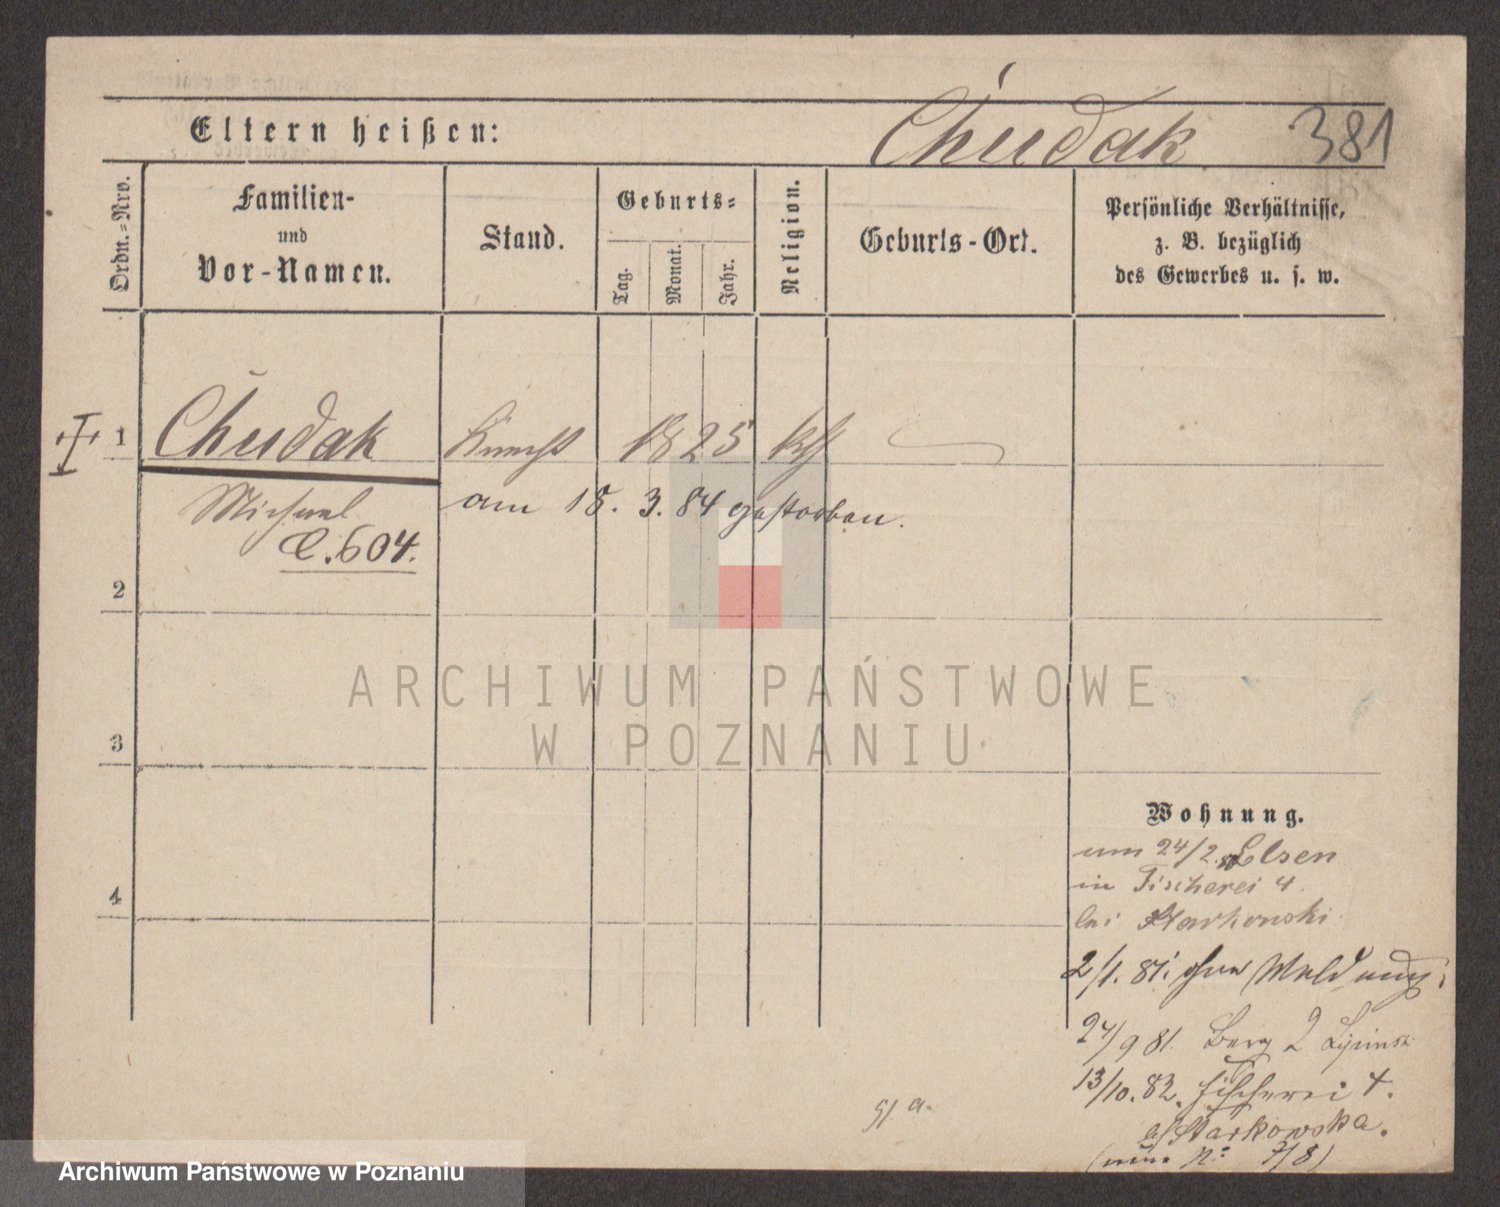 Eltern heißen: Chudak 381
Ordn.=Nro.
Familien-
und
Vor-Namen.
Stand.
Geburts=
Tag.
Monat.
Jahr.
Religion.
Geburts-Ort.
Persönliche Verhältnisse,
z. B. bezüglich
des Gewerbes u. s. w.
1 Chudak Knecht 1825 kth
Michael am 18. 3. 84 gestorben.
C. 604.
2
3
4
Wohnung.
um 24/2. Elsen
in Fischerei 4
bei Starkowski
2/1. 81. ohne Meldung.
24/9 81. Berg 2 Lipinski
13/10. 82. Fischerei 4.
b/Starkowska.
(neue N: 7/8)
ARCHIWUM PAŃSTWOWE
W POZNANIU
Archiwum Państwowe w Poznaniu